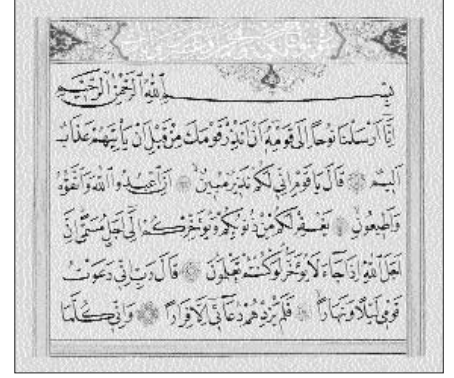 بسم الله الرحمن الرحيم
إنا أرسلنا نوحا إلى قومه أن أنذر قومك من قبل أن يأتيهم عذاب
أليم قال يا قوم إني لكم نذير مبين أن اعبدوا الله واتقوه
وأطيعون يغفر لكم من ذنوبكم ويؤخركم إلى أجل مسمى إن
أجل الله إذا جاء لا يؤخر لو كنتم تعلمون قال رب إني دعوت
قومي ليلا ونهارا فلم يزدهم دعائي إلا فرارا وإني كلما